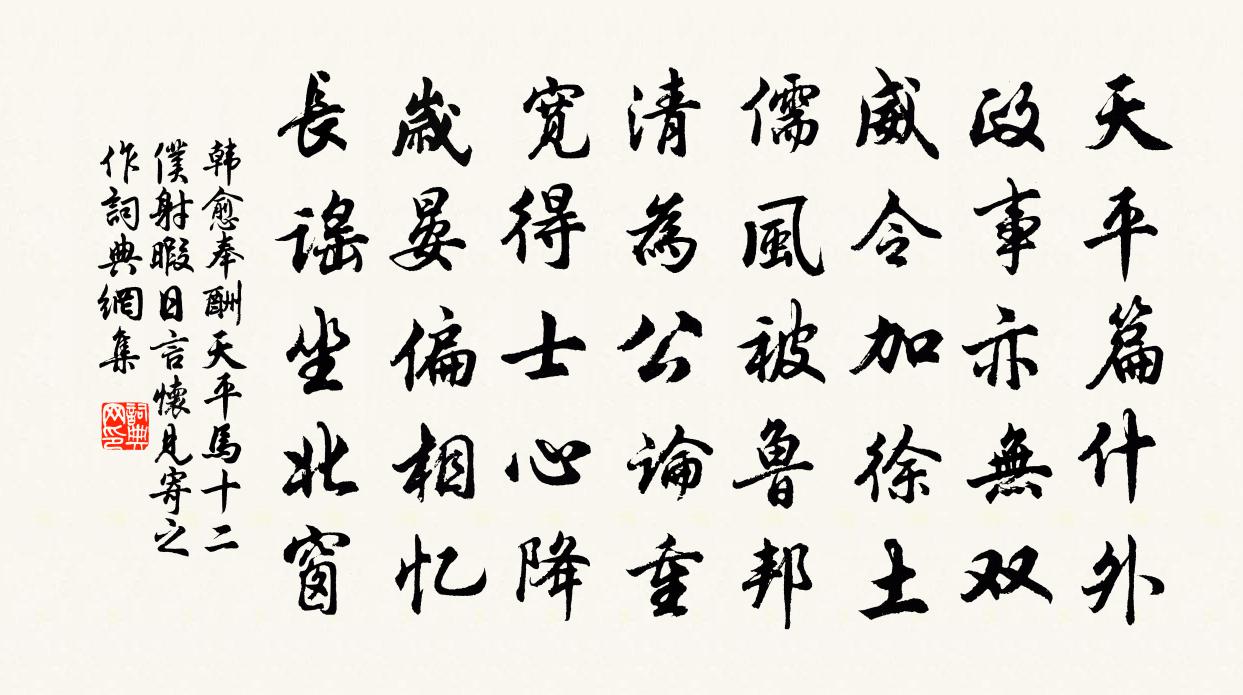 天平篇什外
政事亦無双
威令加徐土
儒風被魯邦
清為公論重
寬得士心降
歲晏偏相忆
長謠坐北窗
韩愈奉酬天平馬十二
僕射暇日言懷見寄之
作詞典網集
詞典
网印